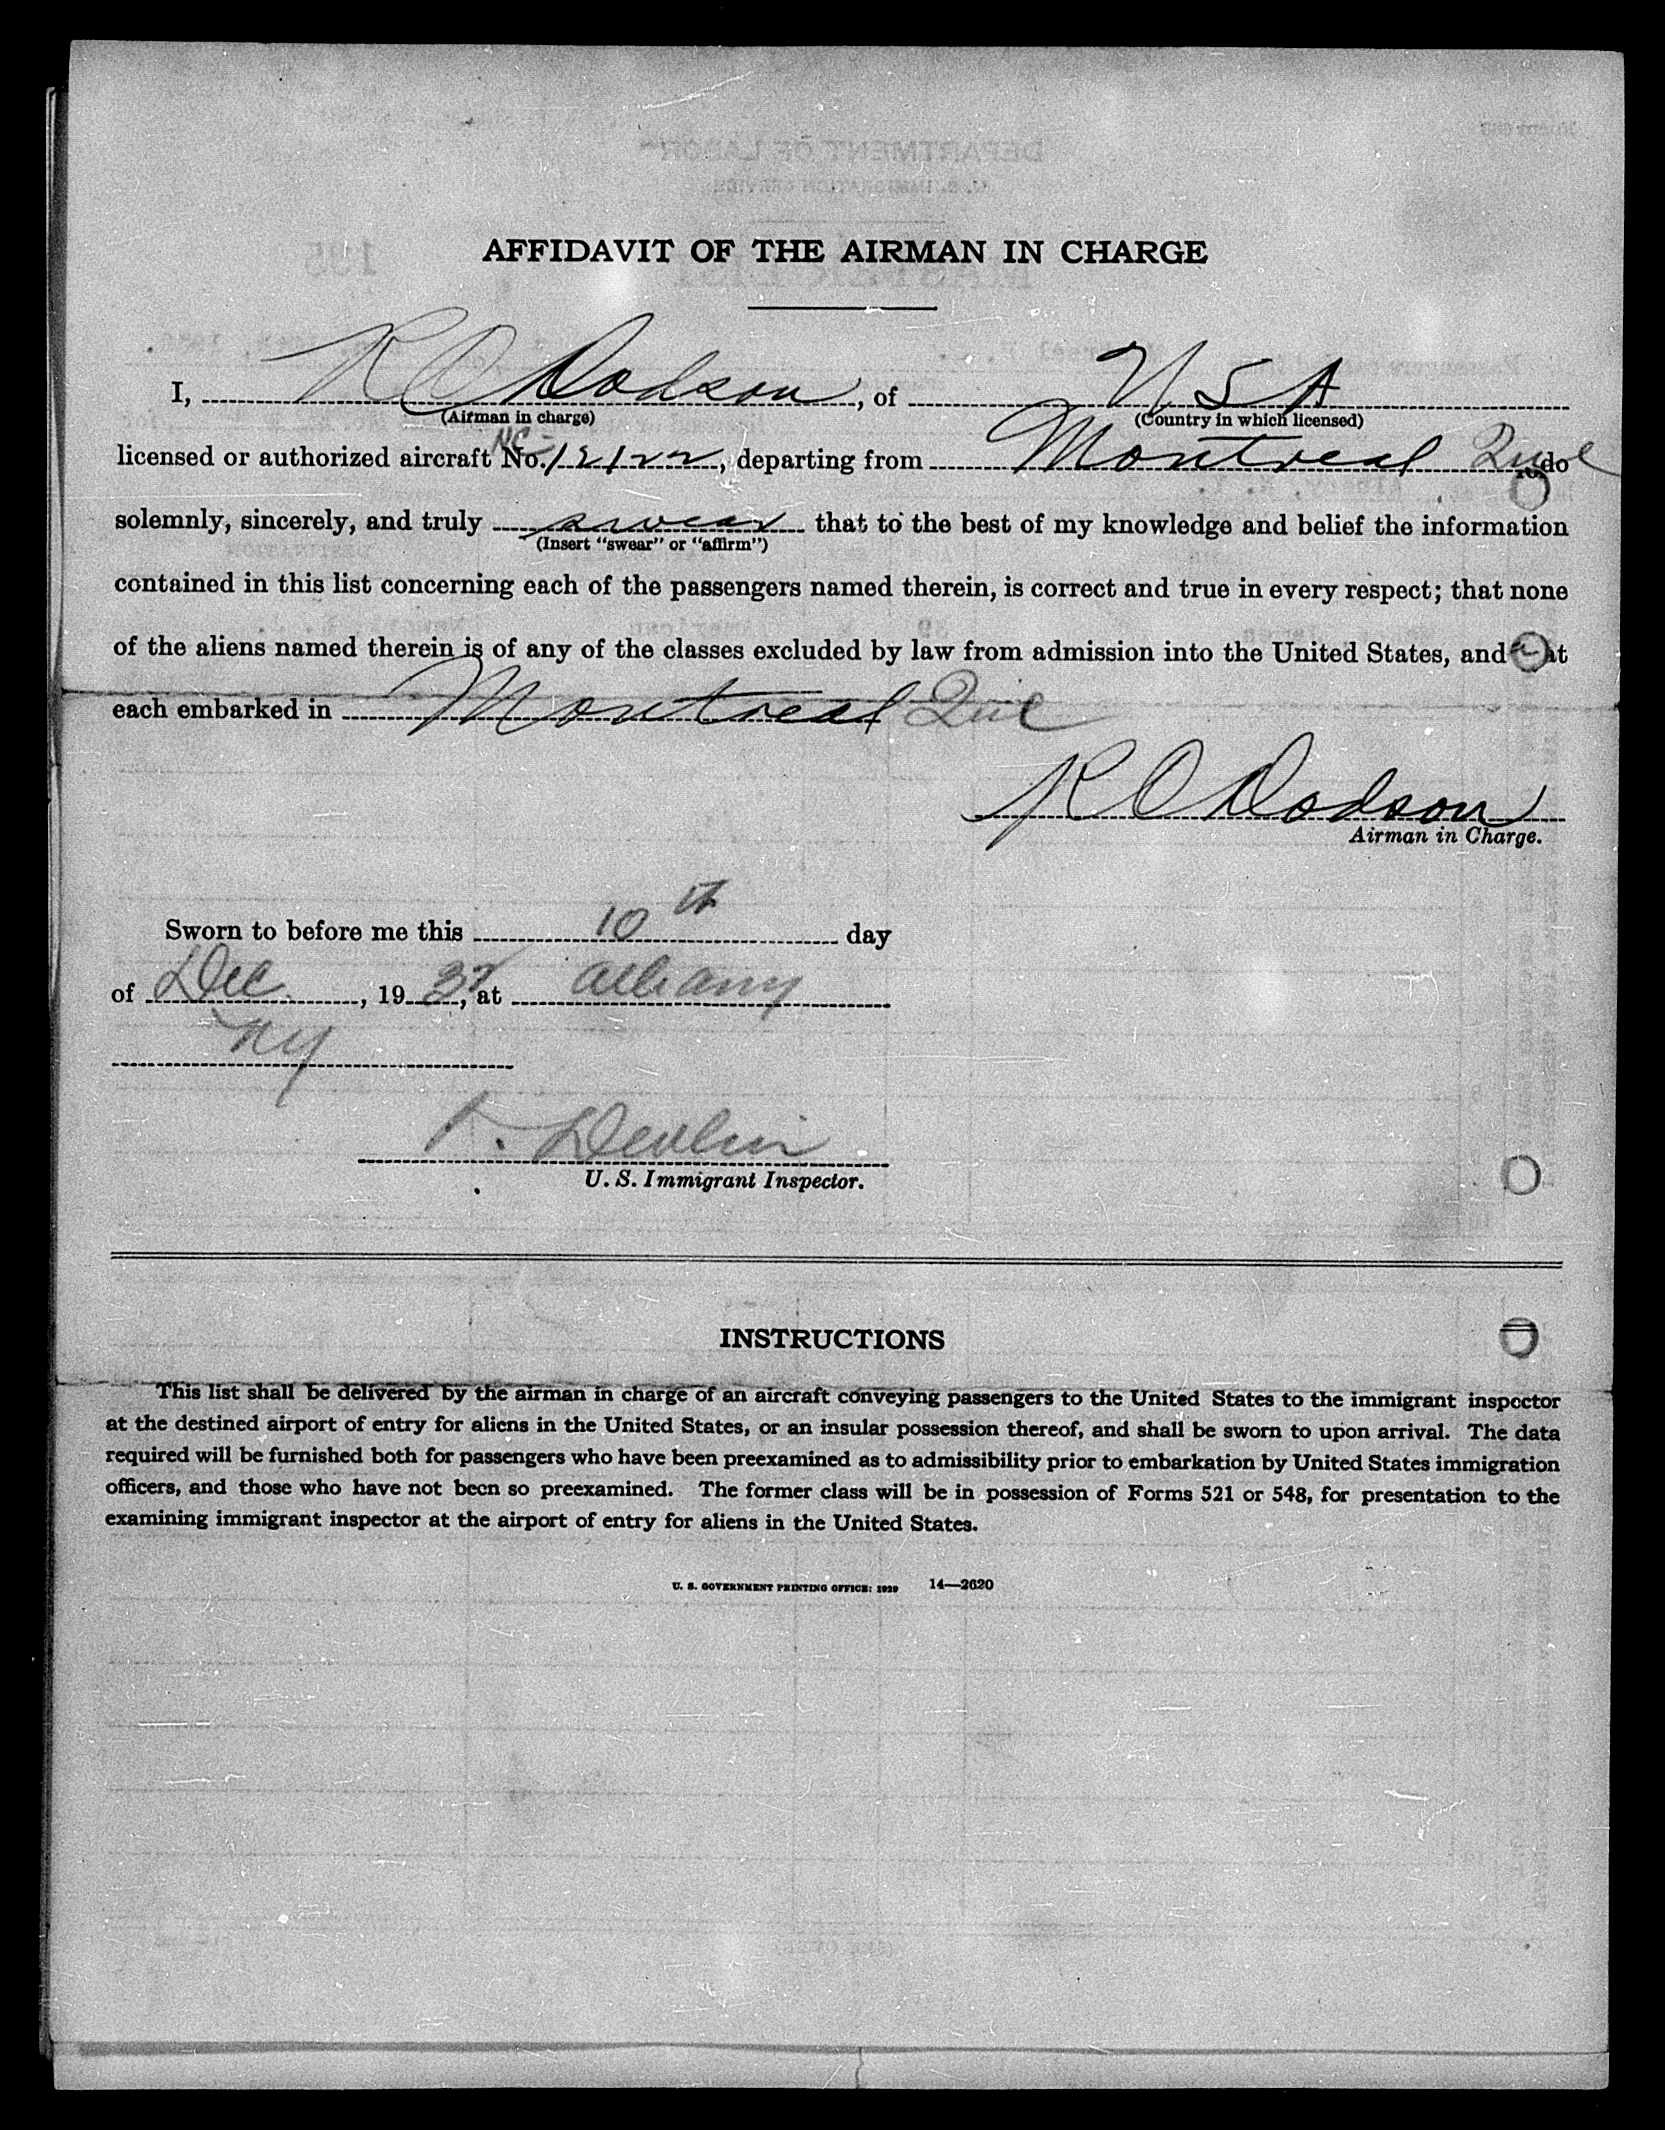 AFFIDAVIT OF THE AIRMAN IN CHARGE
I, R O Dodson, of U S A
(Airman in charge) (Country in which licensed)
NC-
licensed or authorized aircraft No. 12122, departing from Montreal Que do
solemnly, sincerely, and truly swear that to the best of my knowledge and belief the information
(Insert "swear" or "affirm")
contained in this list concerning each of the passengers named therein, is correct and true in every respect; that none
of the aliens named therein is of any of the classes excluded by law from admission into the United States, and
each embarked in Montreal Que
R O Dodson
Airman in Charge.
Sworn to before me this 10th day
of Dec., 1932, at Albany
NY
Devlin
U. S. Immigrant Inspector.
INSTRUCTIONS
This list shall be delivered by the airman in charge of an aircraft conveying passengers to the United States to the immigrant inspector
at the destined airport of entry for aliens in the United States, or an insular possession thereof, and shall be sworn to upon arrival. The data
required will be furnished both for passengers who have been preexamined as to admissibility prior to embarkation by United States immigration
officers, and those who have not been so preexamined. The former class will be in possession of Forms 521 or 548, for presentation to the
examining immigrant inspector at the airport of entry for aliens in the United States.
U. S. GOVERNMENT PRINTING OFFICE: 1929 14—2620